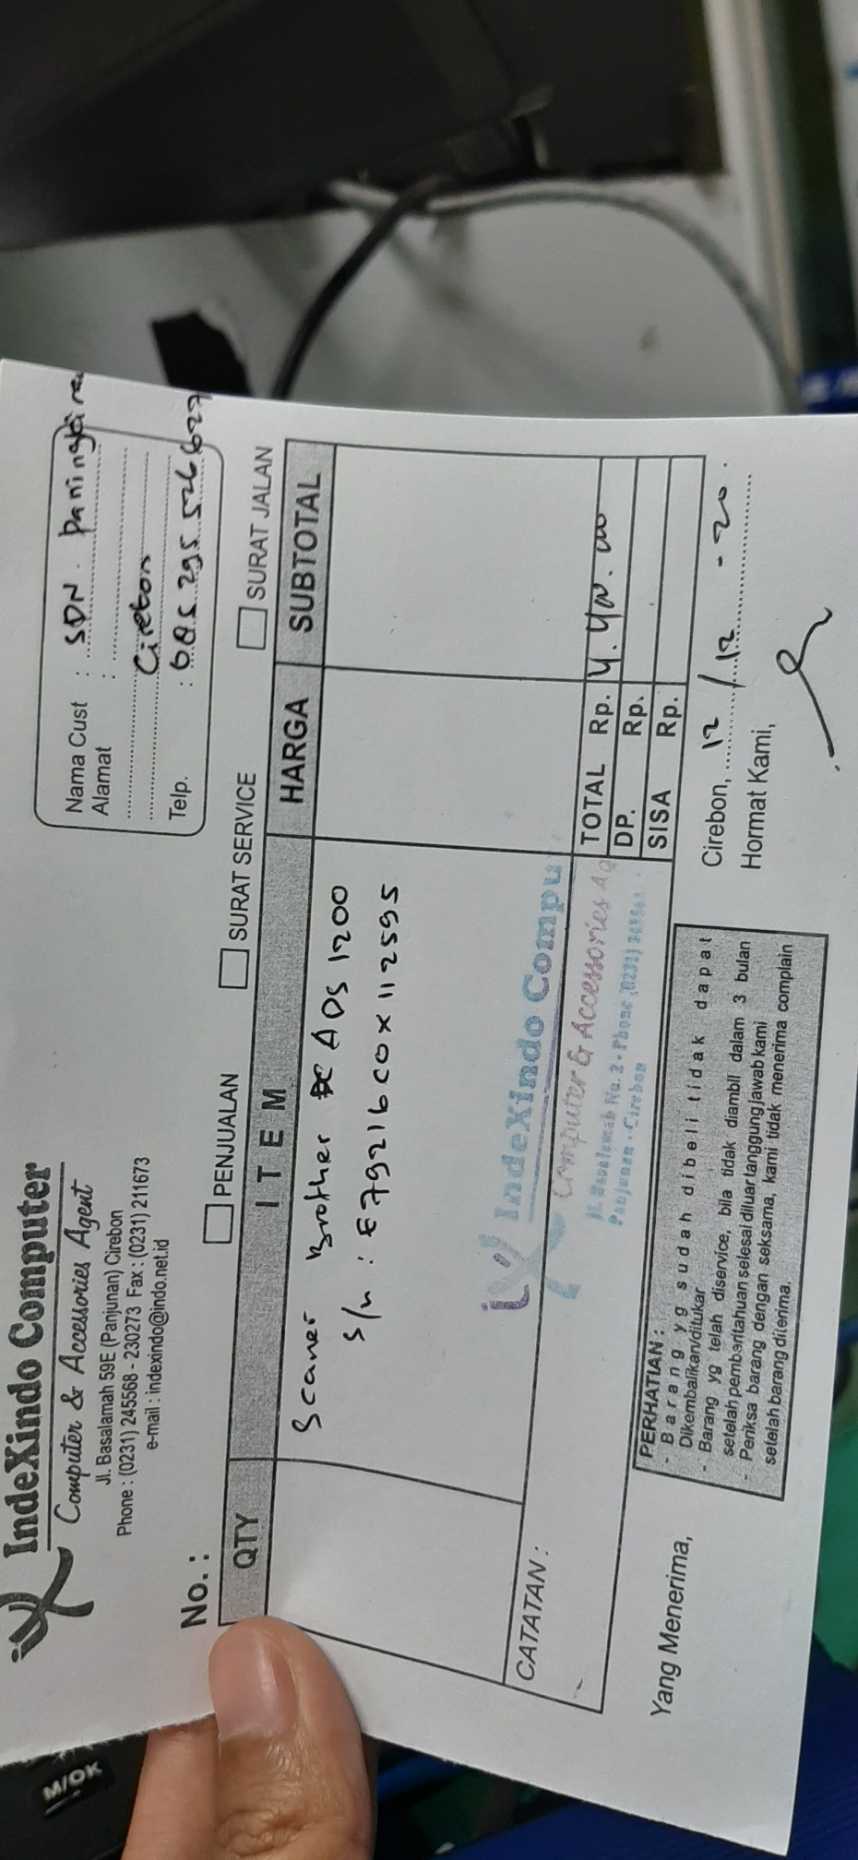 IndeXindo Computer
Computer & Accessories Agent
Jl. Basalamah 59E (Panjunan) Cirebon
Phone : (0231) 245568 - 230273 Fax : (0231) 211673
e-mail : indexindo@indo.net.id
Nama Cust : SDN.
Alamat :
Cirebon
Telp. :
No. :
PENJUALAN SURAT SERVICE SURAT JALAN
QTY ITEM HARGA SUBTOTAL
Scaner Brother ADS 1200
S/n : E79216C0X112595
IndeXindo Compu
Computer & Accessories Ag
Jl. Basalamah No. 2 - Phone (0231)
Panjunan - Cirebon
CATATAN :
TOTAL Rp.
DP. Rp.
SISA Rp.
PERHATIAN :
- Barang yg sudah dibeli tidak dapat
Dikembalikan/ditukar
- Barang yg telah diservice, bila tidak diambil dalam 3 bulan
setelah pemberitahuan selesai diluar tanggung jawab kami
- Periksa barang dengan seksama, kami tidak menerima complain
setelah barang diterima.
Cirebon, 12 / 12 - 20.
Yang Menerima,
Hormat Kami,
M/OK